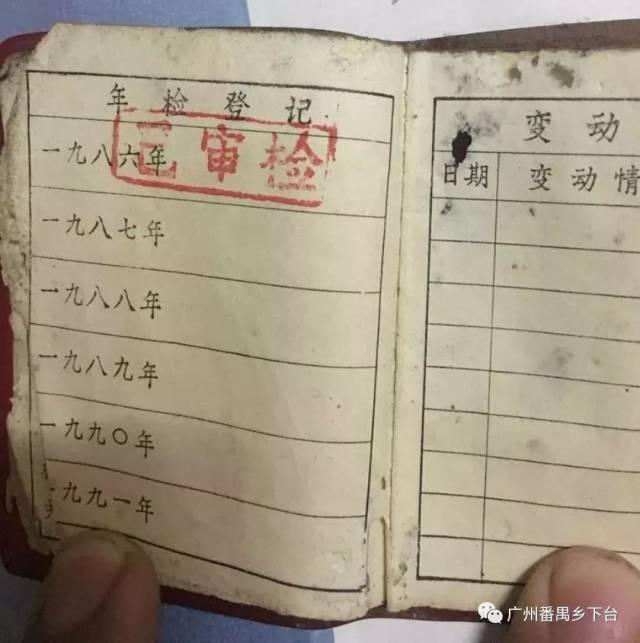 年检登记
已审检
一九八六年
一九八七年
一九八八年
一九八九年
一九九〇年
一九九一年
变动
日期 变动情
广州番禺乡下台